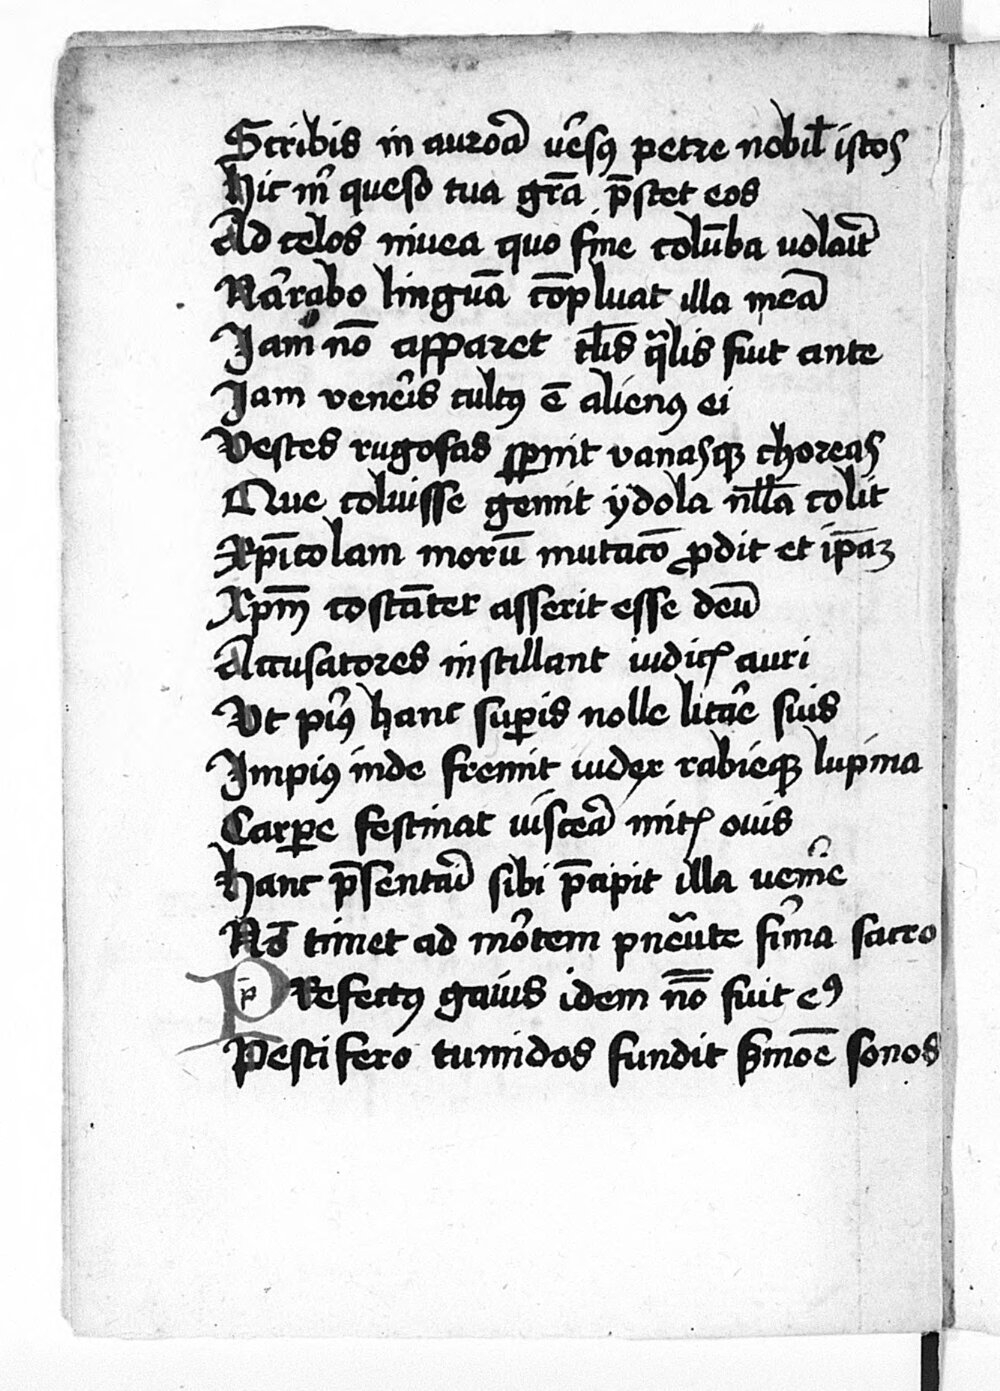 Scribis in aurora v̾sꝯ petre nobil̅ istos
hic m̾ queso tua gr̅a p̅stet eos
Ad celos nivea quo sine colu̅ba volavit
Na̾rabo lingua̅ co̅pluat illa mea
Jam no̅ apparet tl̅is qͣlis fuit ante
Jam vene̾is cultꝯ e̅ alienꝯ ei
Vestes rugosas sꝑnit vanasqꝫ choreas
Que coluisse gemit ydola nll̅a colit
Xp̅icolam moru̅ mutaco̅ ꝓdit et ip̅aꝫ
Xpm̅ co̅sta̅ter asserit esse deu̅
Accusatores instillant iudicꝭ auri
Vt pi̾ꝯ hanc suꝑis nolle lita̾e suis
Impiꝯ inde fremit iudex rabieqꝫ lupina
Carꝑe festinat viscea̾ mitꝭ ouis
hanc p̅sentari sibi p̅cipit illa veni̾e
No̅ timet ad mo̾tem pne̅ute fi̾ma sacro
PRefectꝯ gaius idem no̅ fuit eꝯ
Pestifero tumidos fundit s̾moe̅ sonos